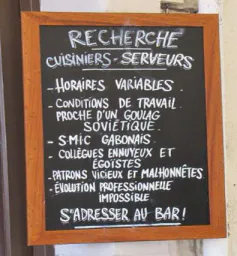 RECHERCHE
CUISINIERS - SERVEURS
- HORAIRES VARIABLES.
- CONDITIONS DE TRAVAIL
PROCHE D'UN GOULAG
SOVIÉTIQUE.
- SMIC GABONAIS.
- COLLÈGUES ENNUYEUX ET
ÉGOÏSTES
- PATRONS VICIEUX ET MALHONNÊTES
- ÉVOLUTION PROFESSIONNELLE
IMPOSSIBLE.
S'ADRESSER AU BAR!